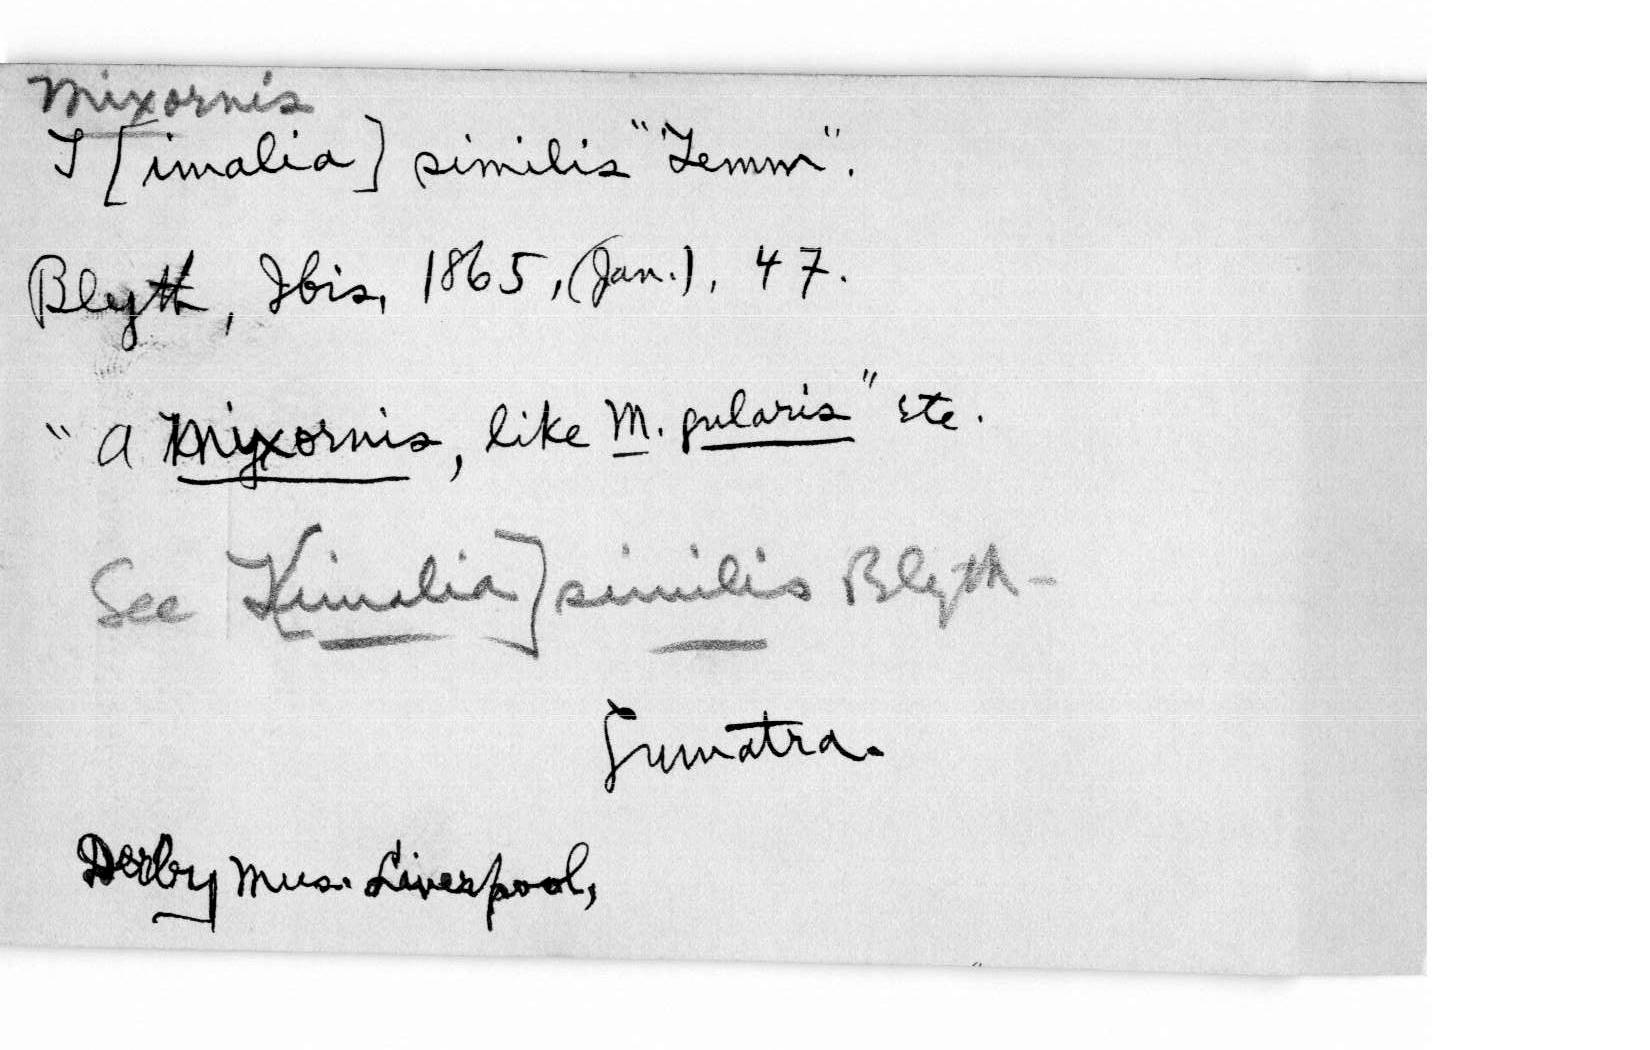 Mixornis
T[imalia] similis "Temm".
Blyth, Ibis, 1865, (Jan.), 47.
"a Myxornis, like M. gularis" etc.
See T[imalia] similis Blyth-
Sumatra.
Derby Mus. Liverpool,